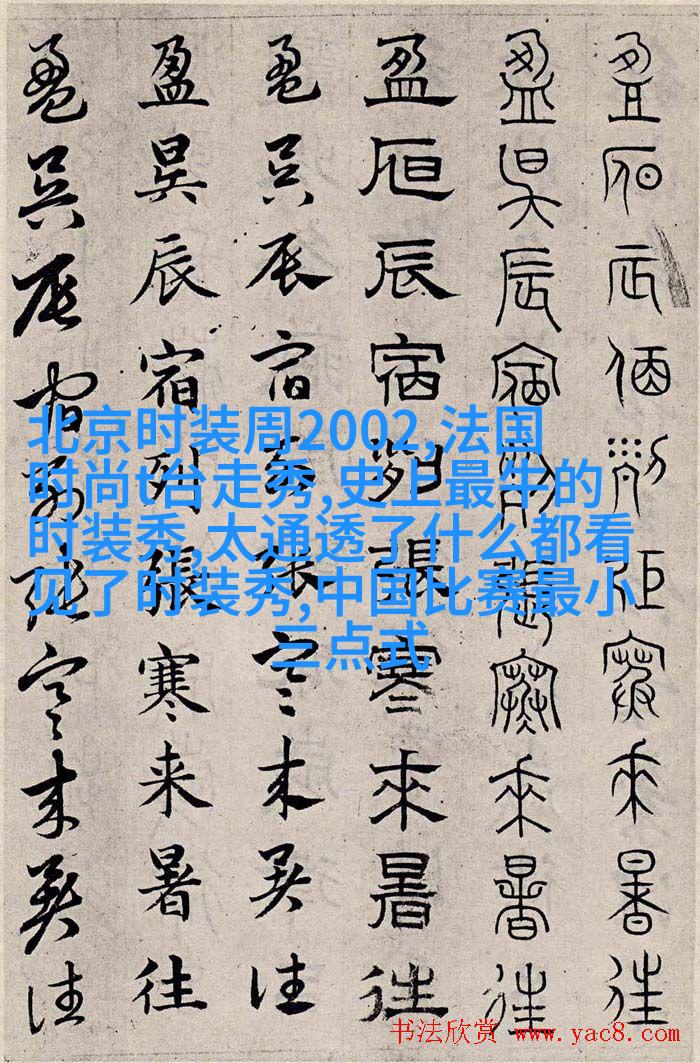 盈昃辰宿列張寒來暑往
盈昃辰宿列張寒來暑往
盈昃辰宿列張寒來暑往
盈昃辰宿列張寒来暑往
盈昃辰宿列張寒来暑往
盈昃辰宿列張寒来暑往
北京时装周2002,法国
时尚t台走秀,史上最牛的
时装秀,太通透了什么都看
见了时装秀,中国比赛最小
三点式
书法欣赏 www.yac8.com